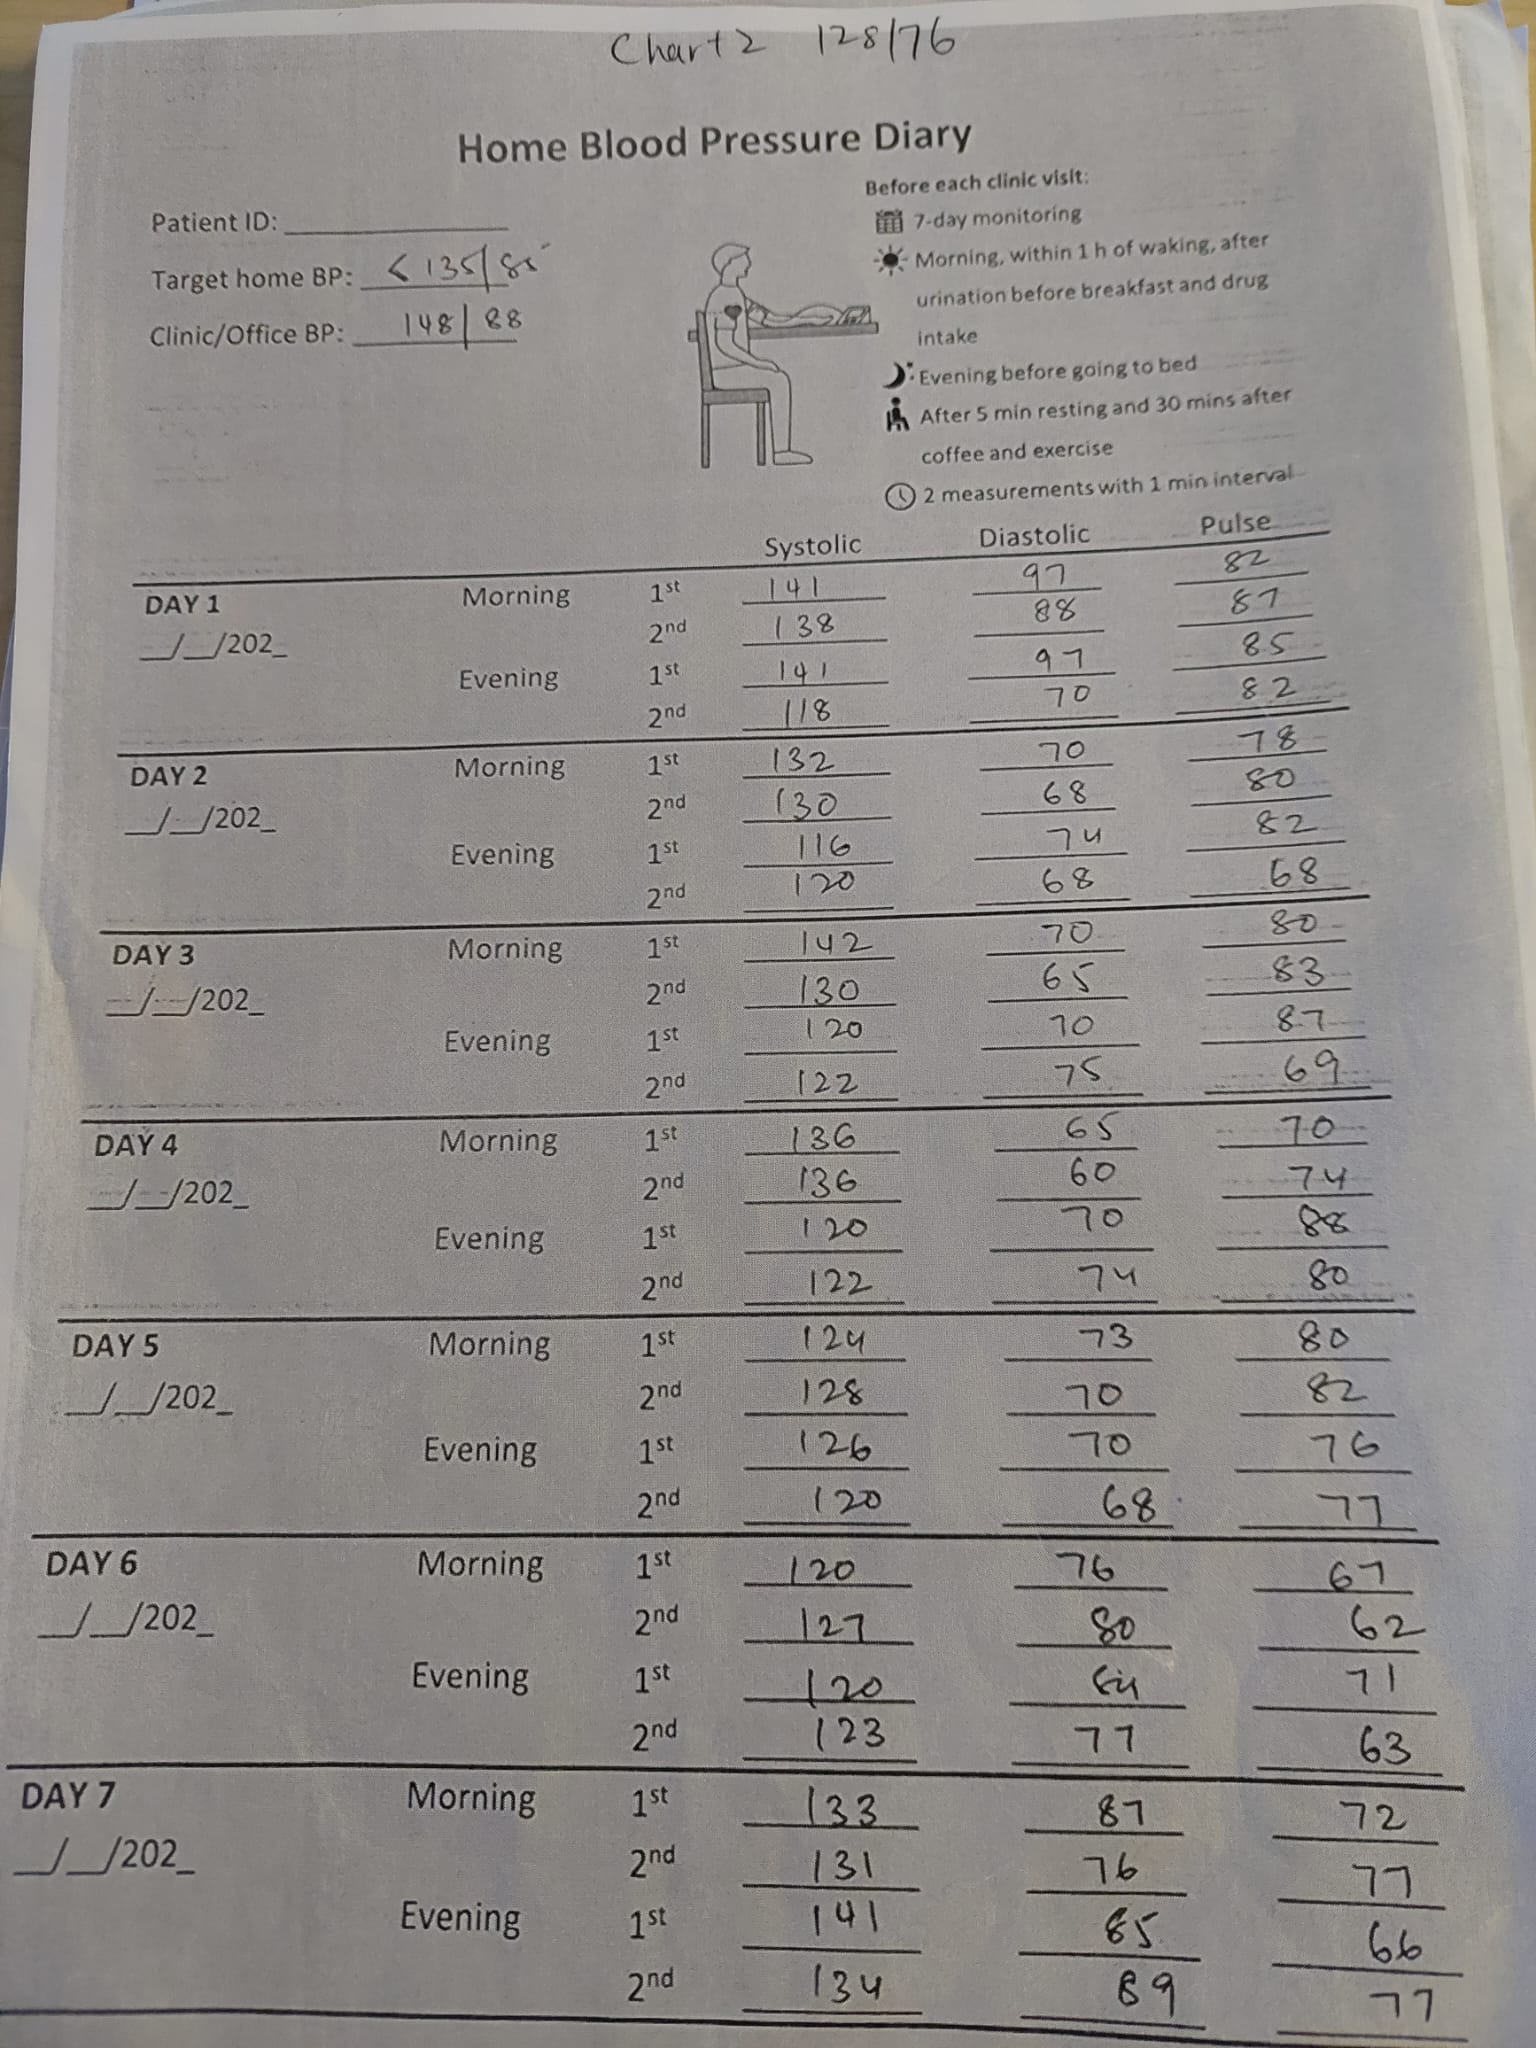 Chart 2 128/76
Home Blood Pressure Diary
Before each clinic visit:
Patient ID:
7-day monitoring
Target home BP: < 135/85
Morning, within 1 h of waking, after
urination before breakfast and drug
intake
Clinic/Office BP: 148/88
Evening before going to bed
After 5 min resting and 30 mins after
coffee and exercise
2 measurements with 1 min interval
Systolic Diastolic Pulse
DAY 1 Morning 1st 141 97 82
__/__/202_ 2nd 138 88 87
Evening 1st 141 97 85
2nd 118 70 82
DAY 2 Morning 1st 132 70 78
__/__/202_ 2nd 130 68 80
Evening 1st 116 74 82
2nd 120 68 68
DAY 3 Morning 1st 142 70 80
__/__/202_ 2nd 130 65 83
Evening 1st 120 70 87
2nd 122 75 69
DAY 4 Morning 1st 136 65 70
__/__/202_ 2nd 136 60 74
Evening 1st 120 70 88
2nd 122 74 80
DAY 5 Morning 1st 124 73 80
__/__/202_ 2nd 128 70 82
Evening 1st 126 70 76
2nd 120 68 77
DAY 6 Morning 1st 120 76 67
__/__/202_ 2nd 127 80 62
Evening 1st 120 71
2nd 123 77 63
DAY 7 Morning 1st 133 87 72
__/__/202_ 2nd 131 76 77
Evening 1st 141 85 66
2nd 134 89 77